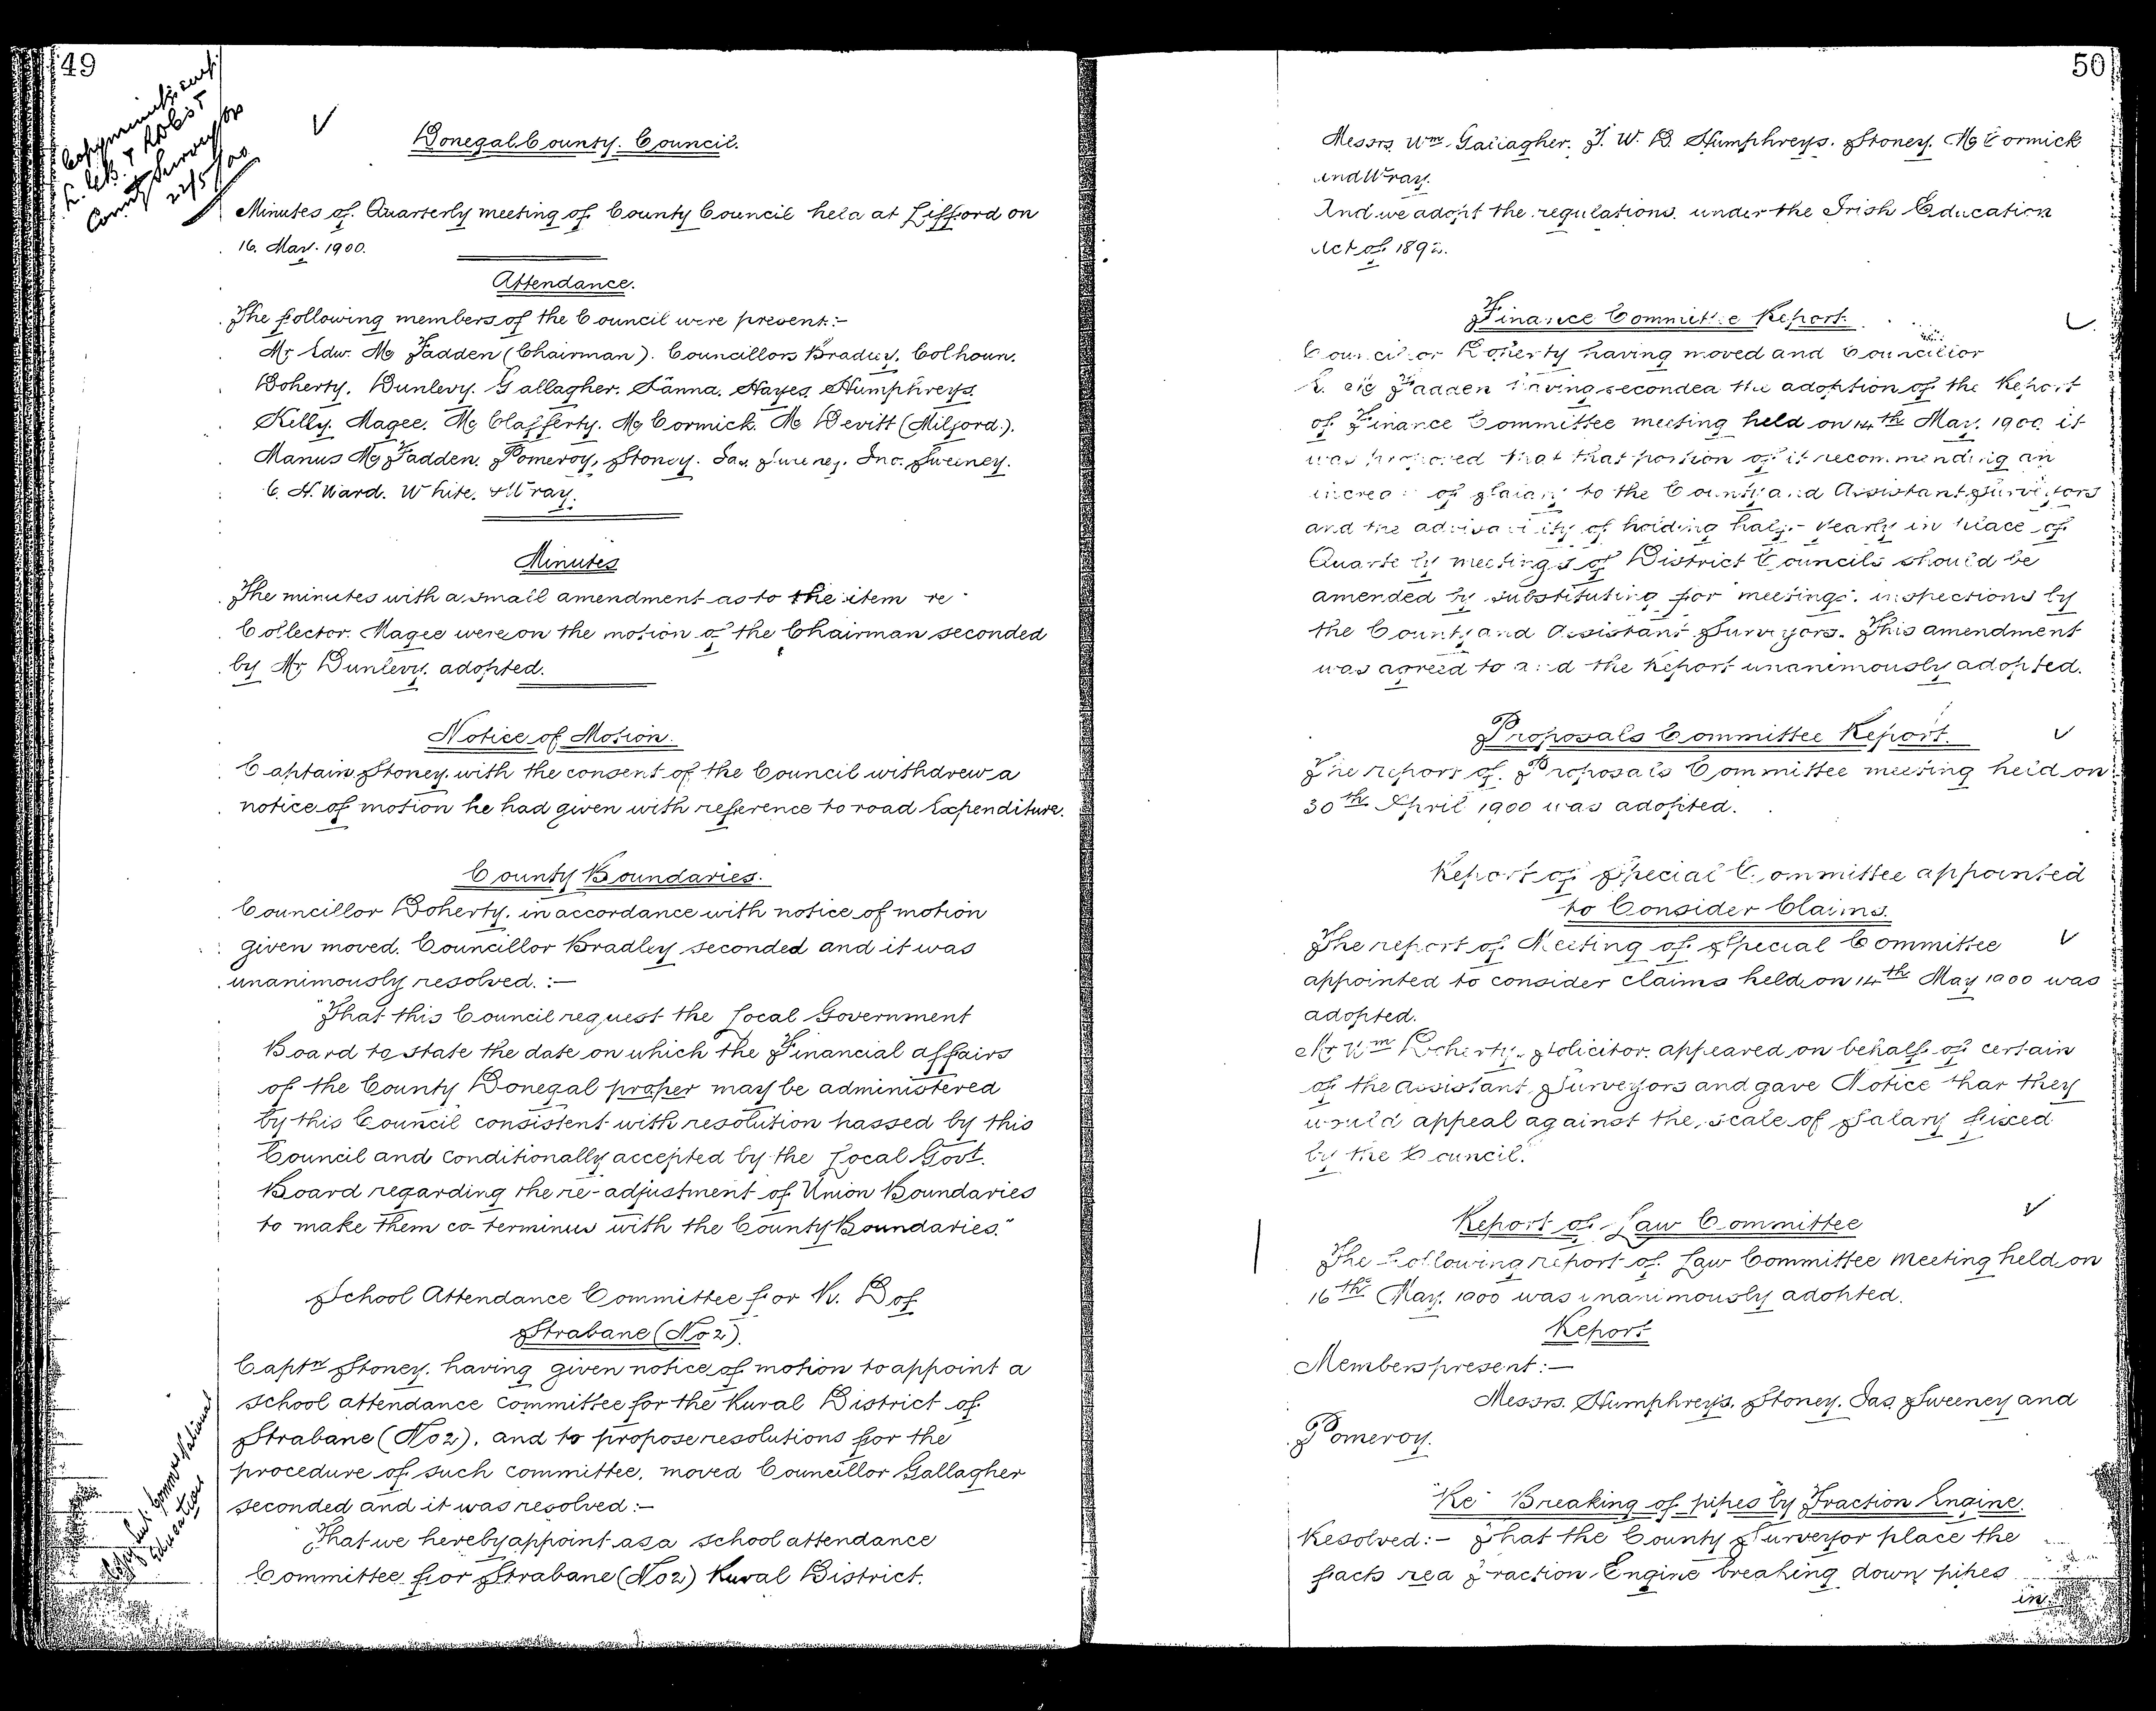 49
Copy minutes sent
L. G. B. &
County Surveyor
22/5/00
Donegal County Council.
Minutes of Quarterly meeting of County Council held at Lifford on
16. May. 1900.
Attendance.
The following members of the Council were present:-
Mr Edw. Mc Fadden (Chairman). Councillors Bradley, Colhoun.
Doherty. Dunlevy. Gallagher. Hanna. Hayes. Humphreys.
Kelly. Magee. Mc Clafferty. Mc Cormick. Mc Devitt (Milford).
Manus Mc Fadden. Pomeroy, Stoney. Jas. Sweeney. Jno. Sweeney.
C. H. Ward. White. & Wray.
Minutes
The minutes with a small amendment as to the item re
Collector Magee were on the motion of the Chairman seconded
by Mr Dunlevy. adopted.
Notice of Motion.
Captain Stoney. with the consent of the Council withdrew a
notice of motion he had given with reference to road Expenditure.
County Boundaries.
Councillor Doherty. in accordance with notice of motion
given moved. Councillor Bradley seconded and it was
unanimously resolved. :-
"That this Council request the Local Government
Board to state the date on which the Financial affairs
of the County Donegal proper may be administered
by this Council consistent with resolution passed by this
Council and conditionally accepted by the Local Govt.
Board regarding the re-adjustment of Union Boundaries
to make them co-terminus with the County Boundaries."
School Attendance Committee for R. D of
Strabane (No 2).
Captn Stoney. having given notice of motion to appoint a
school attendance committee for the Rural District of
Strabane (No 2). and to propose resolutions for the
procedure of such committee, moved Councillor Gallagher
seconded and it was resolved :-
"That we hereby appoint as a school attendance
Committee for Strabane (No 2) Rural District.
Copy sent Commrs National
Education
50
Messrs. Wm. Gallagher. T. W. D. Humphreys. Stoney. Mc Cormick
and Wray.
And we adopt the regulations. under the Irish Education
Act of 1892.
Finance Committee Report.
Councillor Doherty having moved and Councillor
Mc Fadden having seconded the adoption of the Report
of Finance Committee meeting held on 14th May. 1900 it
was proposed that that portion of it recommending an
increase of Salary to the County and Assistant Surveyors
and the advisability of holding half-yearly in place of
Quarterly meetings of District Councils should be
amended by substituting for "meetings". inspections by
the County and Assistant Surveyors. This amendment
was agreed to and the Report unanimously adopted.
Proposals Committee Report.
The report of Proposals Committee meeting held on
30th April 1900 was adopted.
Report of Special Committee appointed
to Consider Claims.
The report of Meeting of Special Committee
appointed to consider claims held on 14th May 1900 was
adopted.
Mr Wm Doherty. Solicitor. appeared on behalf of certain
of the Assistant Surveyors and gave Notice that they
would appeal against the scale of Salary fixed
by the Council.
Report of Law Committee
The following report of Law Committee Meeting held on
16th May. 1900 was unanimously adopted.
Report
Members present :-
Messrs. Humphreys. Stoney. Jas Sweeney and
Pomeroy.
"Re" Breaking of pipes by Traction Engine.
Resolved:- That the County Surveyor place the
facts re a Traction Engine breaking down pipes
in